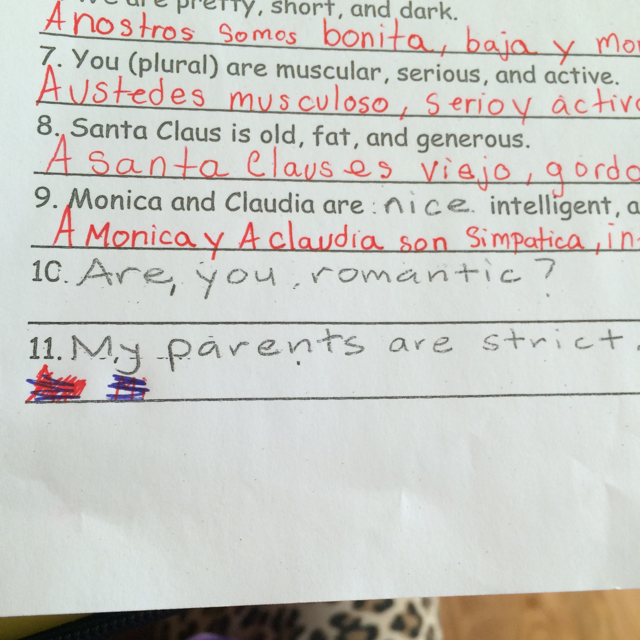 are pretty, short, and dark.
Anostros somos bonita, baja y mor
7. You (plural) are muscular, serious, and active.
Austedes musculoso, serio y activ
8. Santa Claus is old, fat, and generous.
A santa Claus es viejo, gordo
9. Monica and Claudia are : nice intelligent, a
A Monica y A claudia son simpatica, in
10. Are, you romantic?
11. My parents are strict.